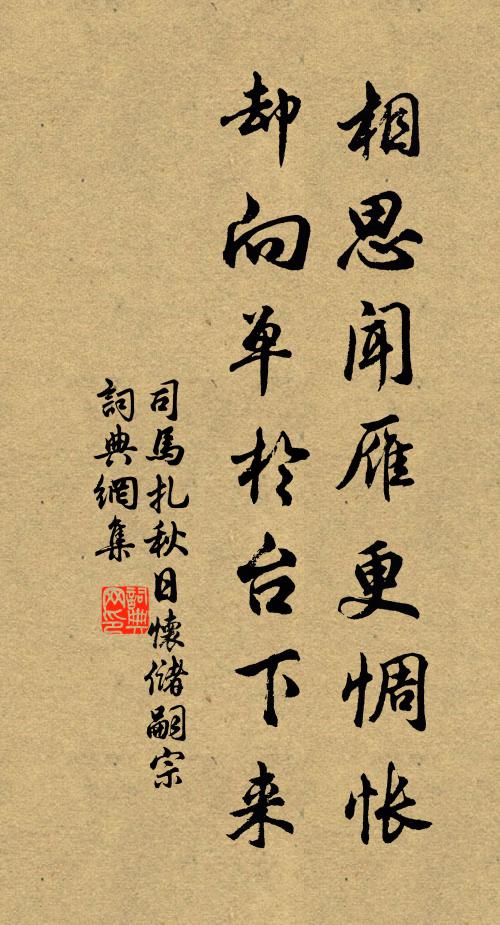 相思闻雁更惆怅
却向单于台下来
司馬扎秋日懷儲嗣宗
詞典網集
詞典网印